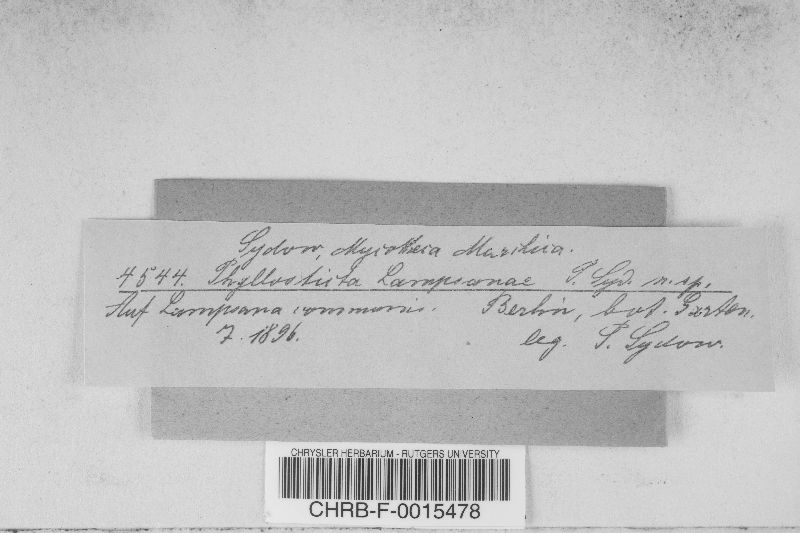 Sydow, Mycotheca Marchica.
4544. Phyllosticta Lampsanae P. Syd. n. sp.
Auf Lampsana communis. Berlin, bot. Garten.
7. 1896. leg. P. Sydow.
CHRYSLER HERBARIUM - RUTGERS UNIVERSITY
CHRB-F-0015478